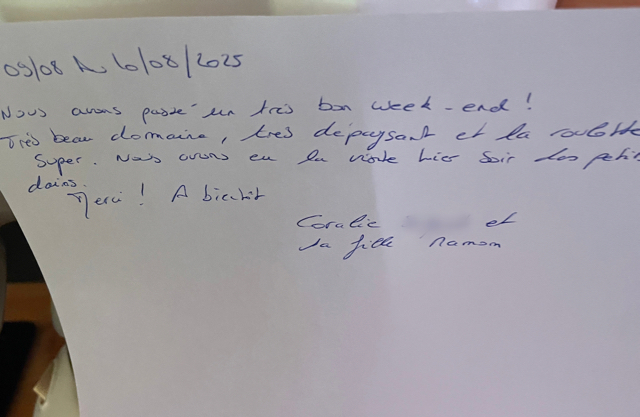 09/08 Au 10/08/2025
Nous avons passé un très bon week-end !
Très beau domaine, très dépaysant et la roulotte
super. Nous avons eu la visite hier soir des petits
daims.
Merci ! A bientôt
Coralie et
sa fille